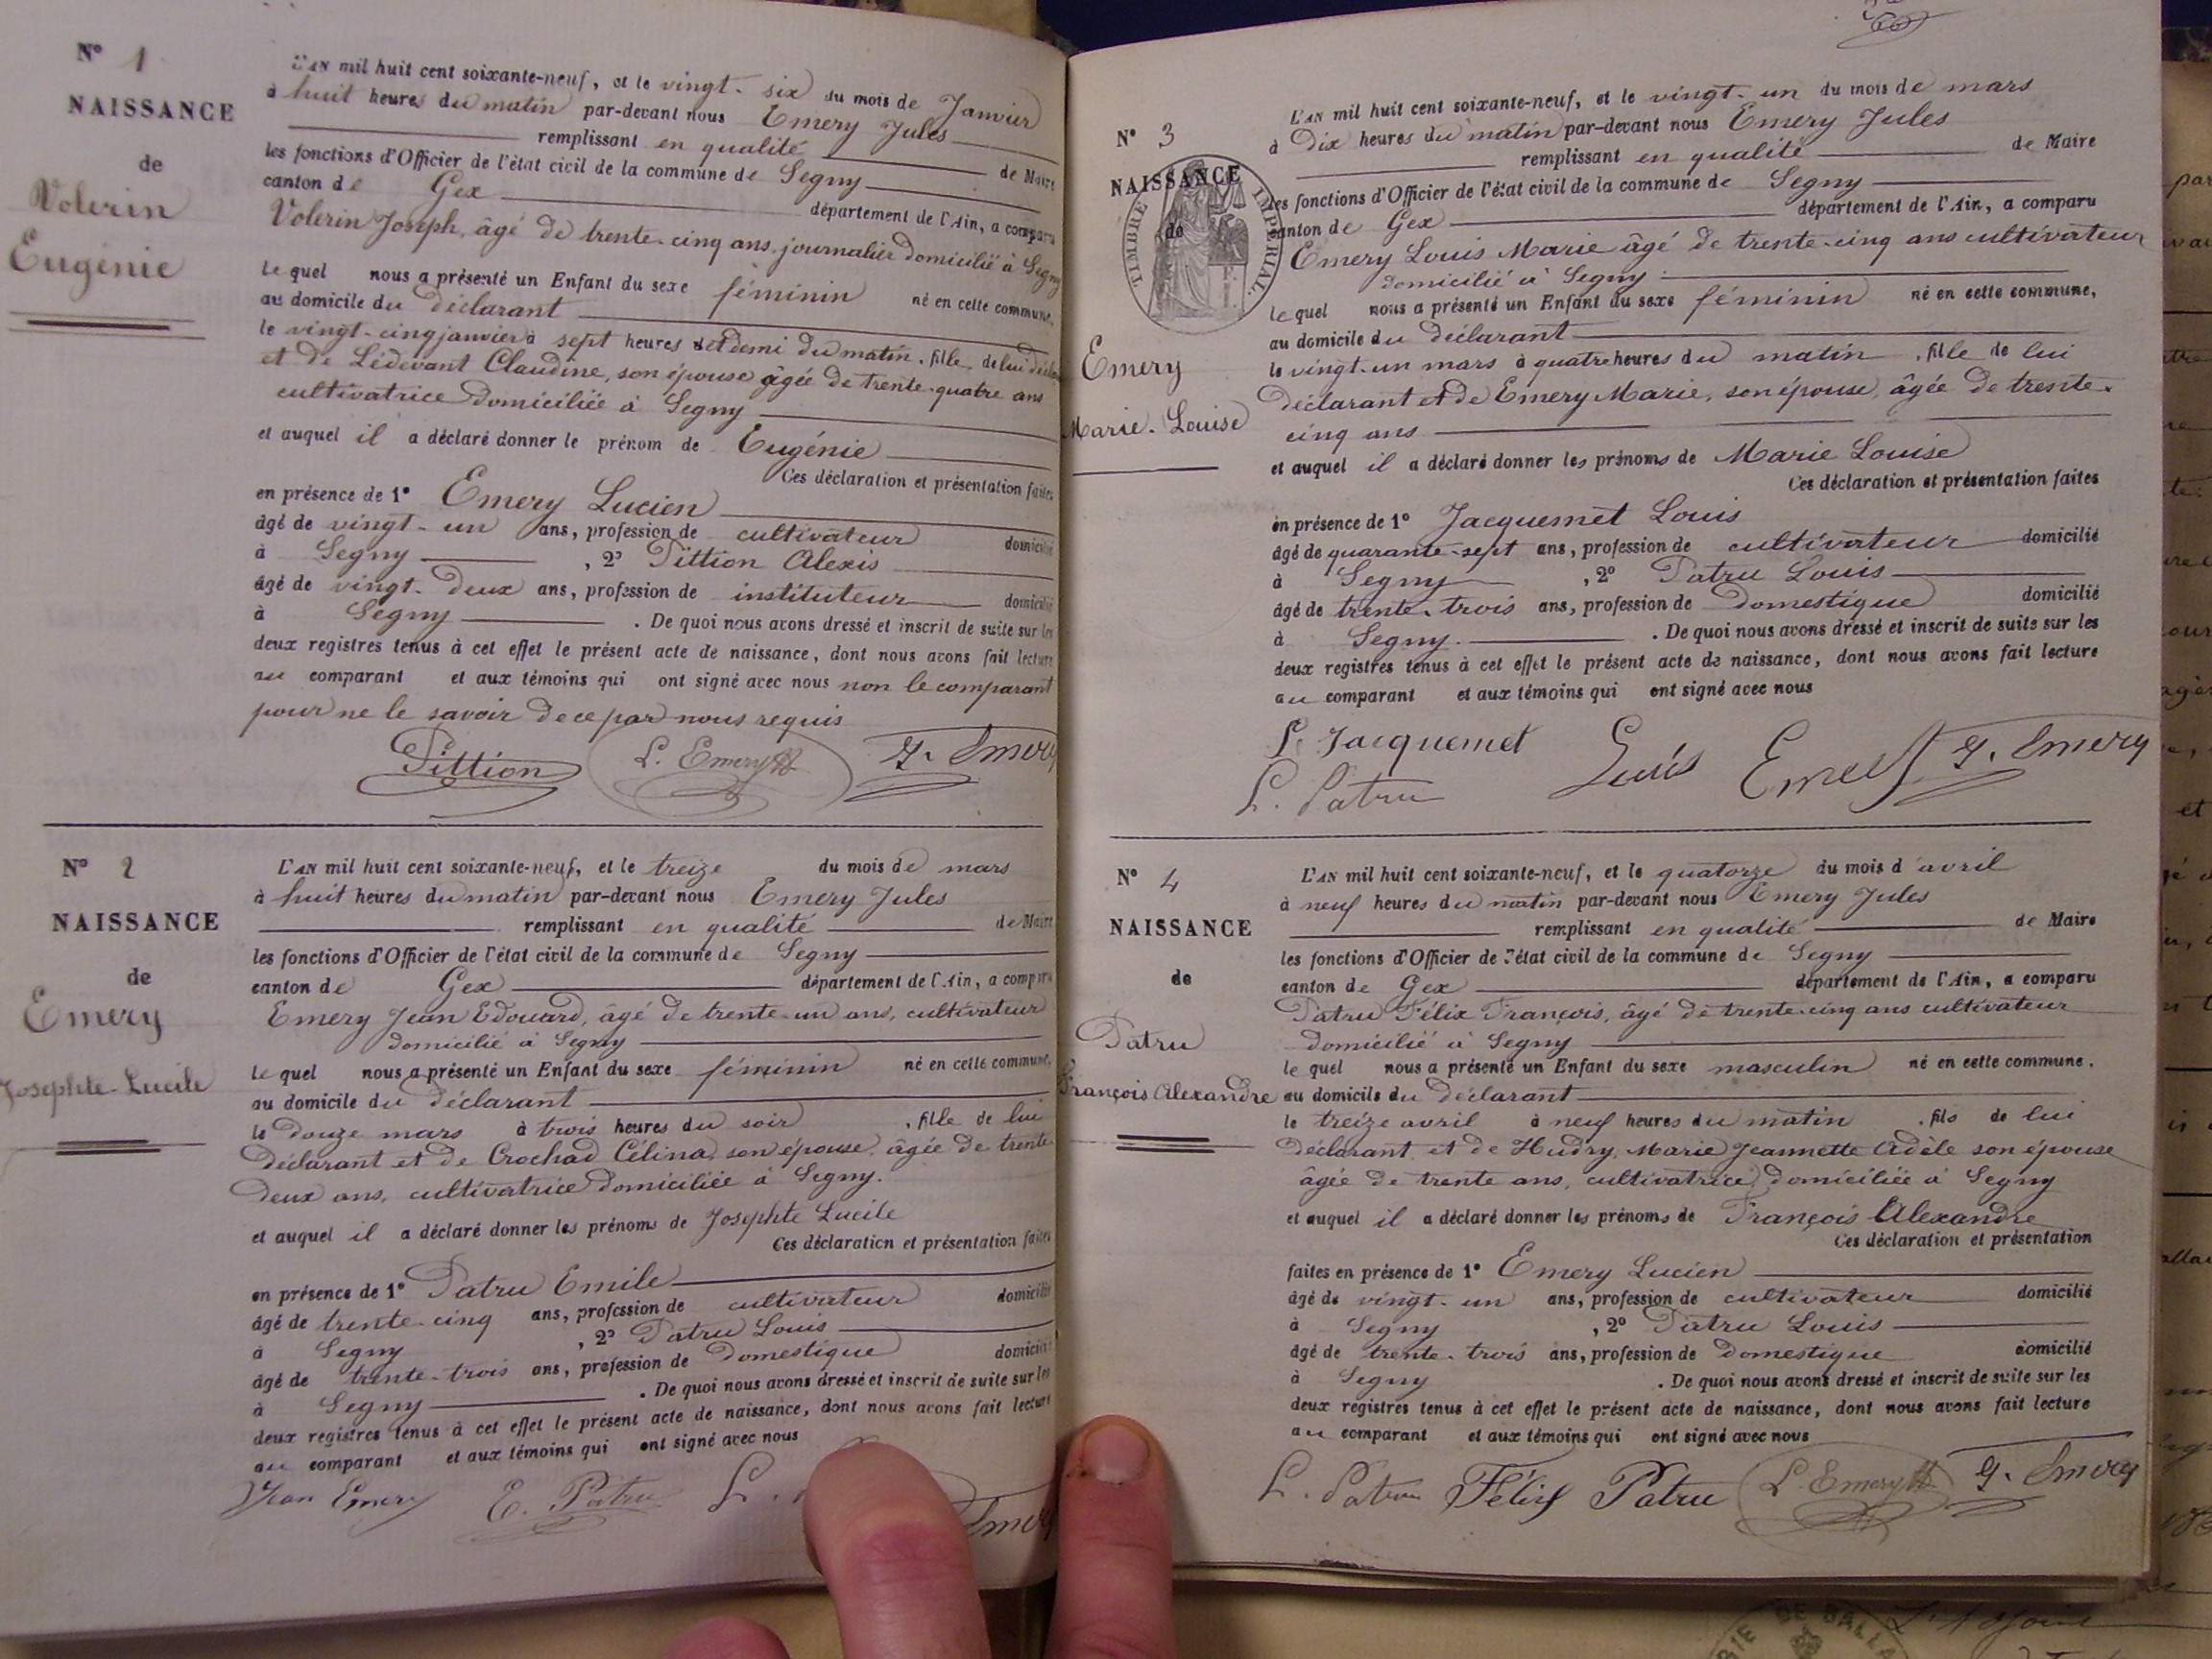 N° 1
NAISSANCE
de
Volerin
Eugénie
L'AN mil huit cent soixante-neuf, et le vingt-six du mois de Janvier
à huit heures du matin par-devant nous Emery Jules
remplissant en qualité de Maire
les fonctions d'Officier de l'état civil de la commune de Segny
canton de Gex département de l'Ain, a comparu
Volerin Joseph, âgé de trente-cinq ans, journalier domicilié à Segny
le quel nous a présenté un Enfant du sexe féminin né en cette commune,
au domicile du déclarant
le vingt-cinq janvier à sept heures et demi du matin, fille de lui
et de Lédevant Claudine, son épouse âgée de trente-quatre ans
cultivatrice domiciliée à Segny
et auquel il a déclaré donner le prénom de Eugénie
Ces déclaration et présentation faites
en présence de 1° Emery Lucien
âgé de vingt-un ans, profession de cultivateur domicilié
à Segny, 2° Pittion Alexis
âgé de vingt-deux ans, profession de instituteur domicilié
à Segny. De quoi nous avons dressé et inscrit de suite sur les
deux registres tenus à cet effet le présent acte de naissance, dont nous avons fait lecture
au comparant et aux témoins qui ont signé avec nous non le comparant
pour ne le savoir de ce par nous requis
Pittion L. Emery J. Emery
N° 2
NAISSANCE
de
Emery
Josephte-Lucile
L'AN mil huit cent soixante-neuf, et le treize du mois de mars
à huit heures du matin par-devant nous Emery Jules
remplissant en qualité de Maire
les fonctions d'Officier de l'état civil de la commune de Segny
canton de Gex département de l'Ain, a comparu
Emery Jean Edouard, âgé de trente-un ans, cultivateur
domicilié à Segny
le quel nous a présenté un Enfant du sexe féminin né en cette commune,
au domicile du déclarant
le douze mars à trois heures du soir, fille de lui
déclarant et de Crochad Célina, son épouse, âgée de trente
deux ans, cultivatrice domiciliée à Segny.
et auquel il a déclaré donner les prénoms de Josephte Lucile
Ces déclaration et présentation faites
en présence de 1° Patru Emile
âgé de trente-cinq ans, profession de cultivateur domicilié
à Segny, 2° Patru Louis
âgé de trente-trois ans, profession de domestique domicilié
à Segny. De quoi nous avons dressé et inscrit de suite sur les
deux registres tenus à cet effet le présent acte de naissance, dont nous avons fait lecture
au comparant et aux témoins qui ont signé avec nous
Jean Emery E. Patru L. Emery
N° 3
NAISSANCE
de
TIMBRE IMPÉRIAL.
Emery
Marie-Louise
L'AN mil huit cent soixante-neuf, et le vingt-un du mois de mars
à Dix heures du matin par-devant nous Emery Jules
remplissant en qualité de Maire
les fonctions d'Officier de l'état civil de la commune de Segny
canton de Gex département de l'Ain, a comparu
Emery Louis Marie âgé de trente-cinq ans cultivateur
domicilié à Segny
le quel nous a présenté un Enfant du sexe féminin né en cette commune,
au domicile du déclarant
le vingt-un mars à quatre heures du matin, fille de lui
déclarant et de Emery Marie, son épouse, âgée de trente-
cinq ans
et auquel il a déclaré donner les prénoms de Marie Louise
Ces déclaration et présentation faites
en présence de 1° Jacquemet Louis
âgé de quarante-sept ans, profession de cultivateur domicilié
à Segny, 2° Patru Louis
âgé de trente-trois ans, profession de domestique domicilié
à Segny. De quoi nous avons dressé et inscrit de suite sur les
deux registres tenus à cet effet le présent acte de naissance, dont nous avons fait lecture
au comparant et aux témoins qui ont signé avec nous
L. Jacquemet Louis Emery J. Emery
L. Patru
N° 4
NAISSANCE
de
Patru
François Alexandre
L'AN mil huit cent soixante-neuf, et le quatorze du mois d'avril
à neuf heures du matin par-devant nous Emery Jules
remplissant en qualité de Maire
les fonctions d'Officier de l'état civil de la commune de Segny
canton de Gex département de l'Ain, a comparu
Patru Félix François, âgé de trente-cinq ans cultivateur
domicilié à Segny
le quel nous a présenté un Enfant du sexe masculin né en cette commune,
au domicile du déclarant
le treize avril à neuf heures du matin, fils de lui
déclarant, et de Hudry, Marie Jeannette Adèle son épouse
âgée de trente ans, cultivatrice, domiciliée à Segny
et auquel il a déclaré donner les prénoms de François Alexandre
Ces déclaration et présentation
faites en présence de 1° Emery Lucien
âgé de vingt-un ans, profession de cultivateur domicilié
à Segny, 2° Patru Louis
âgé de trente-trois ans, profession de domestique domicilié
à Segny. De quoi nous avons dressé et inscrit de suite sur les
deux registres tenus à cet effet le présent acte de naissance, dont nous avons fait lecture
au comparant et aux témoins qui ont signé avec nous
L. Patru Félix Patru L. Emery J. Emery